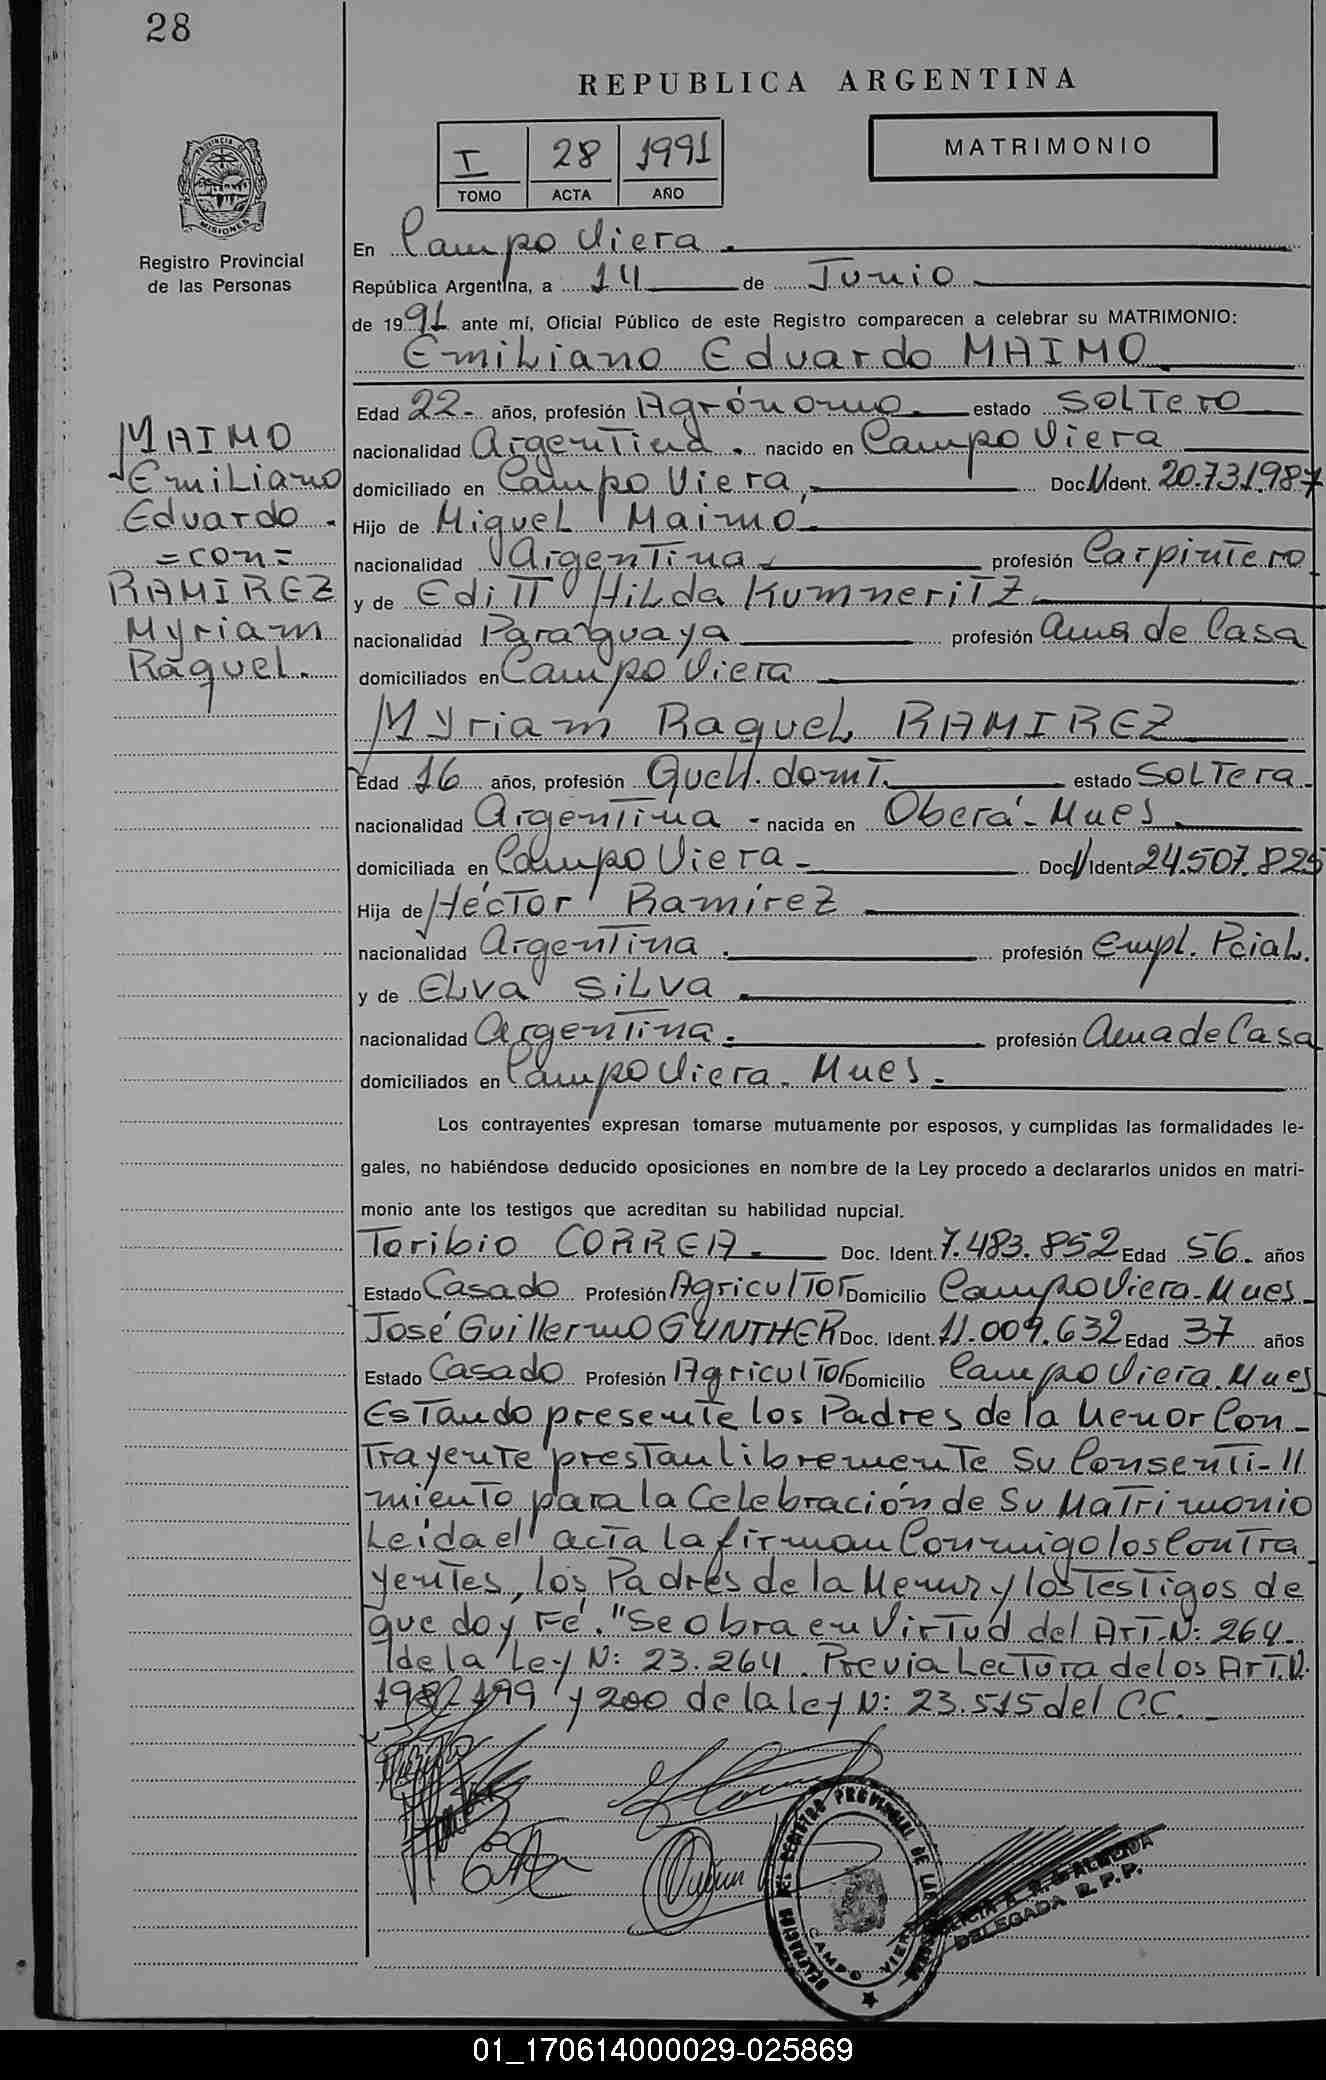 28
REPUBLICA ARGENTINA
I 28 1991
TOMO ACTA AÑO
MATRIMONIO
PROVINCIA DE
MISIONES
Registro Provincial
de las Personas
En Campo Viera.
República Argentina, a 14 de Junio
de 1991 ante mí, Oficial Público de este Registro comparecen a celebrar su MATRIMONIO:
Emiliano Eduardo MAIMO
Edad 22- años, profesión Agrónomo. estado Soltero
nacionalidad Argentina. nacido en Campo Viera
domiciliado en Campo Viera, Doc. Ident. 20.731.987
Hijo de Miguel Maimo
nacionalidad Argentina profesión Carpintero
y de Editt Hilda Kumneritz
nacionalidad Paraguaya profesión Ama de Casa
domiciliados en Campo Viera
MAIMO
Emiliano
Eduardo.
=con=
RAMIREZ
Myriam
Raquel.
Myriam Raquel RAMIREZ
Edad 16 años, profesión Queh. domt. estado Soltera.
nacionalidad Argentina - nacida en Oberá-Mnes.
domiciliada en Campo Viera- Doc. Ident. 24.507.825
Hija de Héctor Ramírez
nacionalidad Argentina. profesión Empl. Pcial.
y de Elva Silva
nacionalidad Argentina. profesión Ama de Casa
domiciliados en Campo Viera. Mnes.
Los contrayentes expresan tomarse mutuamente por esposos, y cumplidas las formalidades le-
gales, no habiéndose deducido oposiciones en nombre de la Ley procedo a declararlos unidos en matri-
monio ante los testigos que acreditan su habilidad nupcial.
Toribio CORREA. Doc. Ident. 7.483.852 Edad 56. años
Estado Casado Profesión Agricultor Domicilio Campo Viera-Mnes
José Guillermo GUNTHER Doc. Ident. 11.009.632 Edad 37 años
Estado Casado Profesión Agricultor Domicilio Campo Viera. Mnes
Estando presente los Padres de la Menor Con-
trayente prestan libremente Su Consenti-//
miento para la Celebración de Su Matrimonio
Leída el acta la firman Conmigo los Contra
yentes, los Padres de la Menor y los Testigos de
que doy Fé. "Se obra en Virtud del Art-N: 264-
de la Ley N: 23.264. Previa Lectura de los Art.N.
198-199 y 200 de la ley N: 23.515 del C.C.
REGISTRO PROVINCIAL DE LAS
CAMPO VIERA
ALMEIDA
DELEGADA R.P.P.
01_170614000029-025869